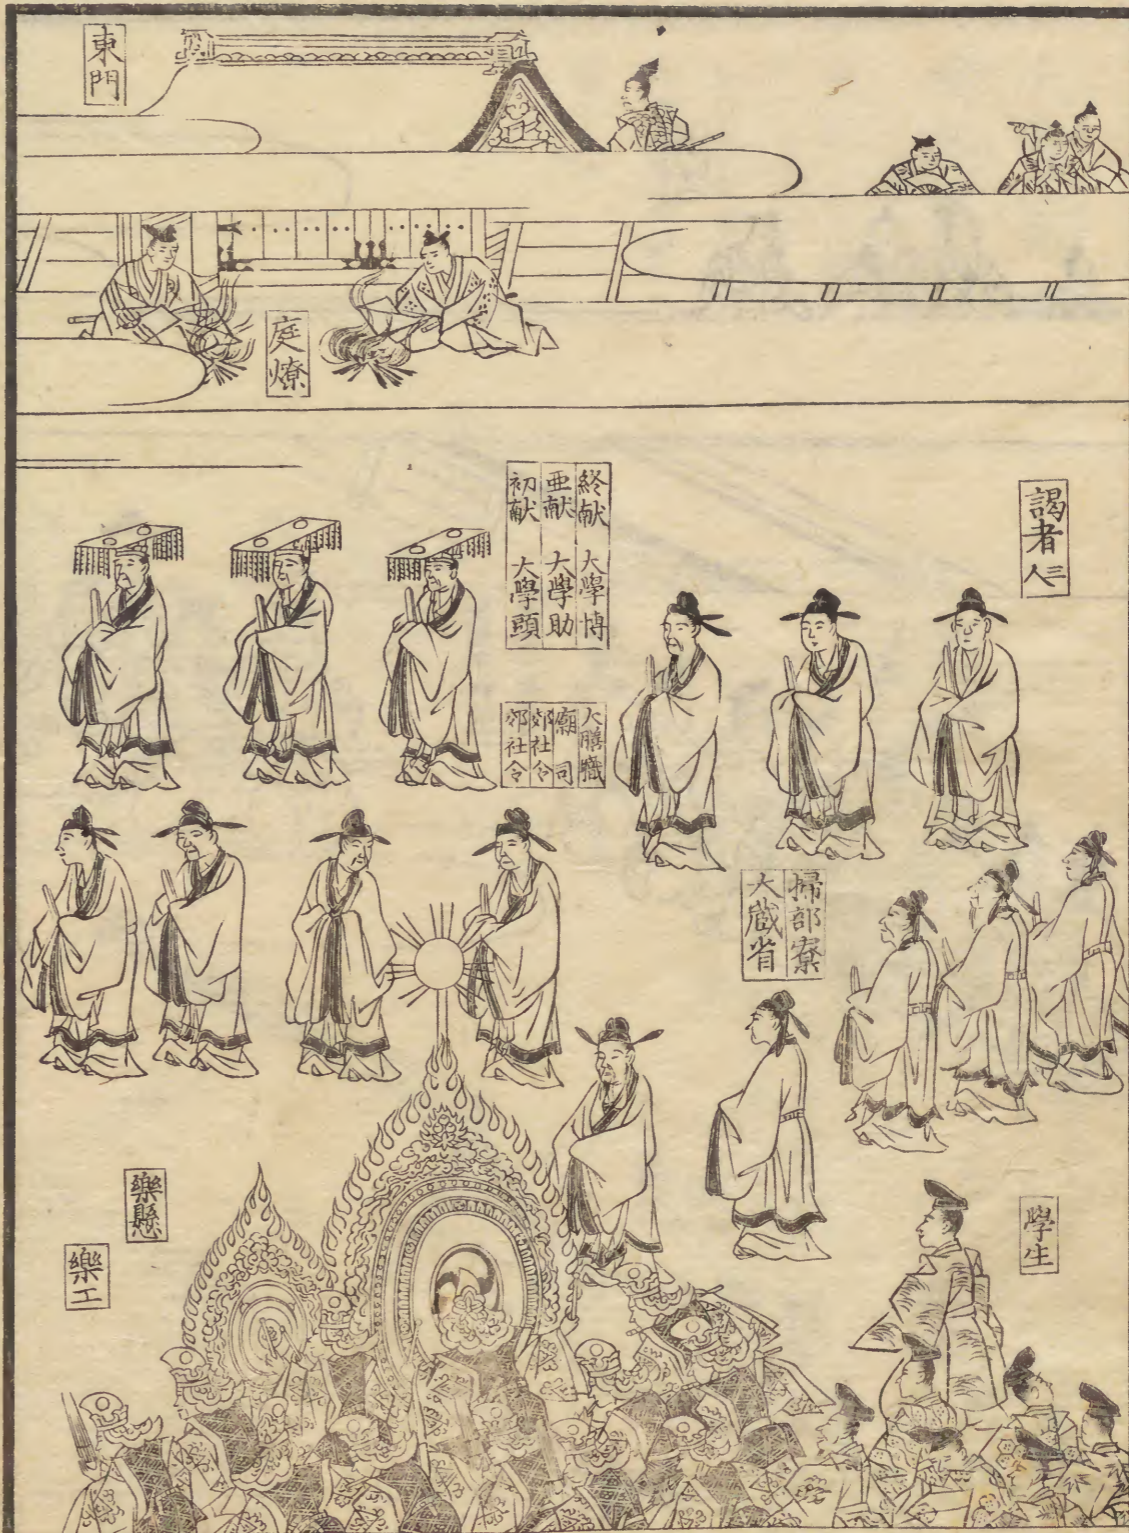 東門
庭燎
謁者三人
終献 大學博
亜献 大學助
初献 大學頭
大膳職
廟司
郊社令
郊社令
掃部寮
大蔵省
學生
樂懸
樂工